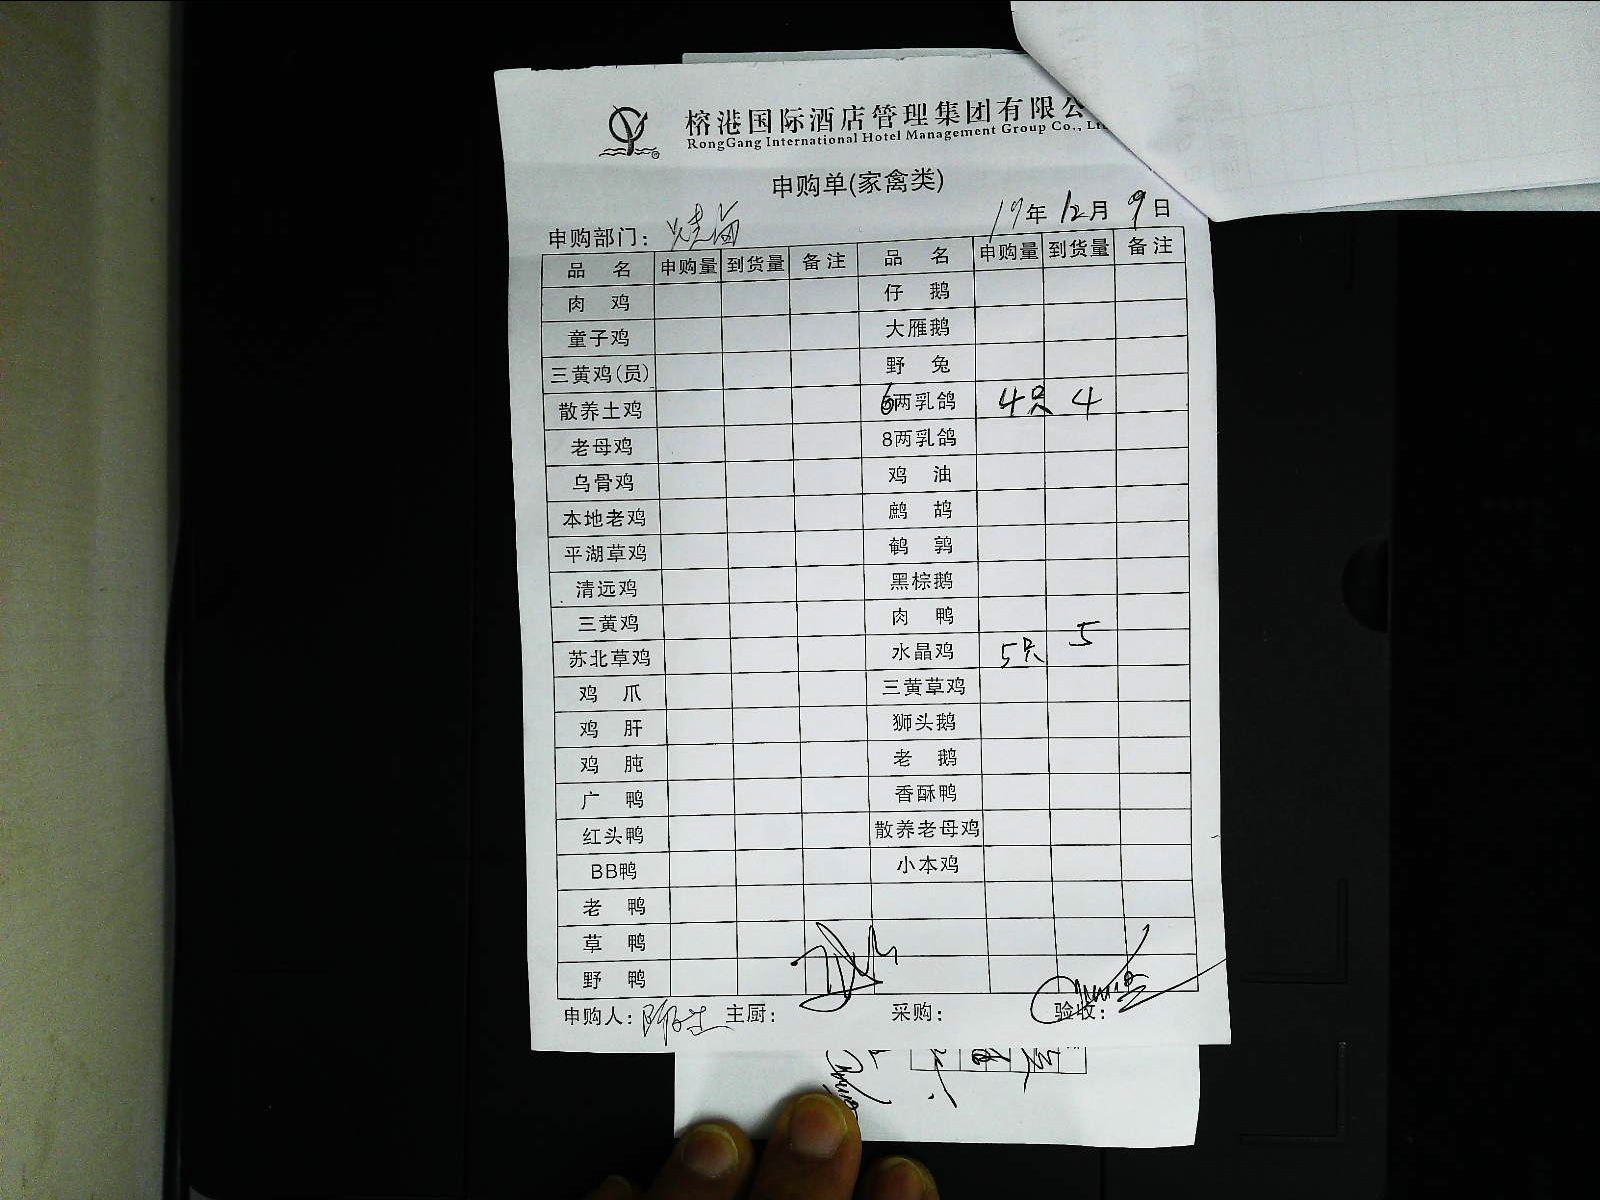 榕港国际酒店管理集团有限公
RongGang International Hotel Management Group Co., Lt
申购单(家禽类)
19年 12月 9日
申购部门：
品 名 申购量 到货量 备注 品 名 申购量 到货量 备注
肉 鸡 仔 鹅
童子鸡 大雁鹅
三黄鸡(员) 野 兔
散养土鸡 6两乳鸽 4只 4
老母鸡 8两乳鸽
乌骨鸡 鸡 油
本地老鸡 鹧 鸪
平湖草鸡 鹌 鹑
清远鸡 黑棕鹅
三黄鸡 肉 鸭
苏北草鸡 水晶鸡 5只 5
鸡 爪 三黄草鸡
鸡 肝 狮头鹅
鸡 肫 老 鹅
广 鸭 香酥鸭
红头鸭 散养老母鸡
BB鸭 小本鸡
老 鸭
草 鸭
野 鸭
申购人： 主厨： 采购： 验收：